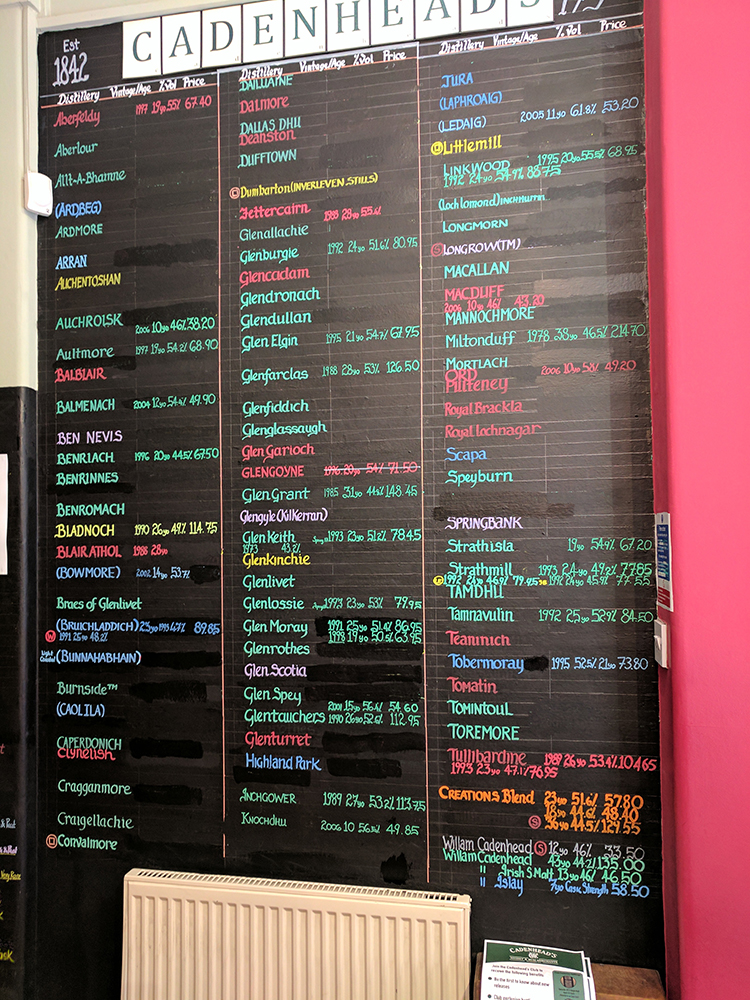 CADENHEAD'S
Est
1842
Distillery Vintage/Age %Vol Price
Aberfeldy 1997 19yo 55% 67.40
Aberlour
Allt-A-Bhainne
(ARDBEG)
ARDMORE
ARRAN
AUCHENTOSHAN
AUCHROISK 2006 10yo 46% 38.20
Aultmore 1997 19yo 54.2% 68.90
BALBLAIR
BALMENACH 2004 12yo 54.4% 49.90
BEN NEVIS
BENRIACH 1996 20yo 44.5% 67.50
BENRINNES
BENROMACH
BLADNOCH 1990 26yo 49.% 114.75
BLAIR ATHOL 1988 28yo
(BOWMORE) 2002 14yo 53.7%
Braes of Glenlivet
(BRUICHLADDICH) 23yo 1993 47% 89.85
W 1991 25yo 48.2%
(BUNNAHABHAIN)
Burnside™
(CAOL ILA)
CAPERDONICH
Clynelish
Cragganmore
Craigellachie
Convalmore
Distillery Vintage/Age %Vol Price
DAILUAINE
Dalmore
DALLAS DHU
Deanston
DUFFTOWN
Dumbarton (INVERLEVEN STILLS)
Fettercairn 1988 28yo 55.4%
Glenallachie
Glenburgie 1992 24yo 51.6% 80.95
Glencadam
Glendronach
Glendullan
Glen Elgin 1995 21yo 54.7% 67.95
Glenfarclas 1988 28yo 53% 126.50
Glenfiddich
Glenglassaugh
Glen Garioch
GLENGOYNE 1996 20yo 54% 71.50
Glen Grant 1985 31yo 44.2% 148.45
Glengyle (Kilkerran)
Glen Keith 1993 23yo 51.2% 78.45
1973 43.2%
Glenkinchie
Glenlivet
Glenlossie 1993 23yo 53% 79.95
Glen Moray 1991 25yo 51.4% 86.95
Glenrothes
Glen Scotia
Glen Spey
2001 15yo 56.4% 54.60
Glentauchers 1990 26yo 52.6% 112.95
Glenturret
HIGHLAND PARK
INCHGOWER 1989 27yo 53.2% 113.75
KNOCHDHU 2006 10 56.5% 49.85
Distillery Vintage/Age %Vol Price
JURA
(LAPHROAIG)
(LEDAIG) 2005 11yo 61.8% 53.20
Littlemill
LINKWOOD 1995 20yo 55.5% 68.95
1992 24yo 54.9% 88.75
(Loch lomond) INCHMURRIN
LONGMORN
S LONGROW(TM)
MACALLAN
MACDUFF
2006 10yo 46% 43.20
MANNOCHMORE
Miltonduff 1978 38yo 46.5% 214.70
MORTLACH
ORD 2006 10yo 58% 49.20
Pulteney
Royal Brackla
Royal Lochnagar
Scapa
Speyburn
SPRINGBANK
Strathisla 19yo 54.9% 67.20
Strathmill 1993 24yo 49.2% 77.85
1992 24yo 46.9% 79.95 1992 24yo 45.9% 77.55
TAMDHU
Tamnavulin 1992 25yo 52.9% 84.50
Teaninich
Tobermoray 1995 52.5% 21yo 73.80
Tomatin
Tomintoul
TOREMORE
Tullibardine 1989 26yo 53.4% 104.65
1993 23yo 47.1% 76.95
CREATIONS Blend 23yo 51.6% 57.80
S 36yo 44.5% 127.55
Willam Cadenhead S 12yo 46% 33.50
Willam Cadenhead 43yo 44.2% 135.00
" Irish S Malt 13yo 46% 46.50
" Islay 7yo Cask Strength 58.50
CADENHEAD'S
Join the Cadenhead's Club to
receive the following benefits
Be the first to know about new
releases